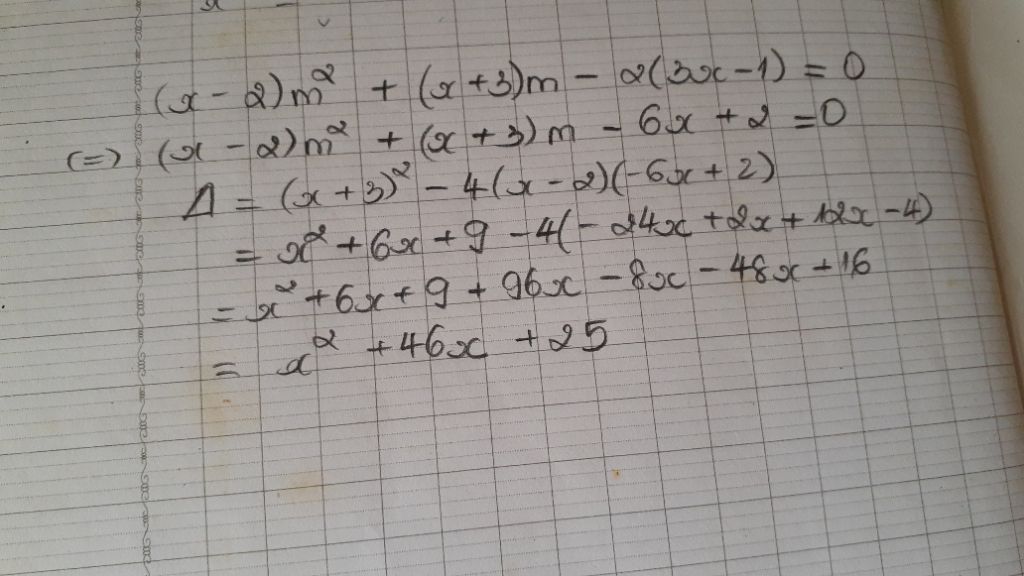 (x - 2)m² + (x+3)m - 2(3x-1) = 0
(=) (x - 2)m² + (x + 3)m - 6x + 2 = 0
Δ = (x + 3)² - 4(x - 2)(-6x + 2)
= x² + 6x + 9 - 4(- 24x + 2x + 12x - 4)
= x² + 6x + 9 + 96x - 8x - 48x + 16
= x² + 46x + 25